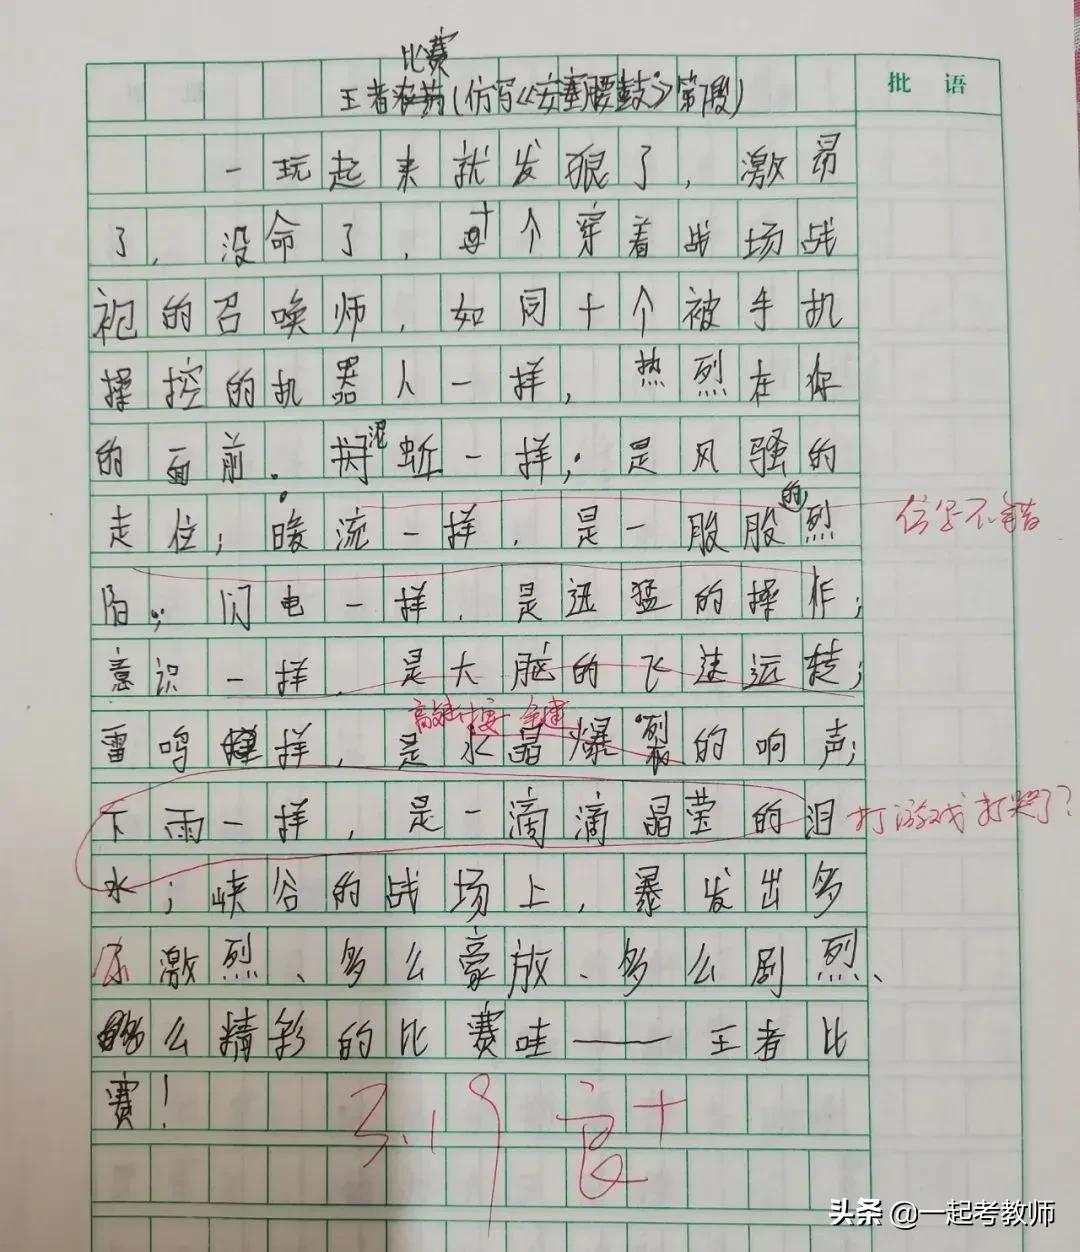 批 语
比赛
王者(仿写《安塞腰鼓》第7段)
一玩起来就发狠了，激昂
了，没命了，十个穿着战场战
袍的召唤师，如同十个被手机
操控的机器人一样，热烈在你
的面前。泥蚯一样，是风骚的
走位；暖流一样，是一股股的烈
阳；闪电一样，是迅猛的操作；
意识一样，是大脑的飞速运转；
高建
雷鸣一样，是水晶爆裂的响声；
下雨一样，是一滴滴晶莹的泪
水；峡谷的战场上，暴发出多
么激烈、多么豪放、多么剧烈、
多么精彩的比赛哇——王者比
赛！
仿写不错
打游戏打哭了？
3.19 良+
头条 @一起考教师